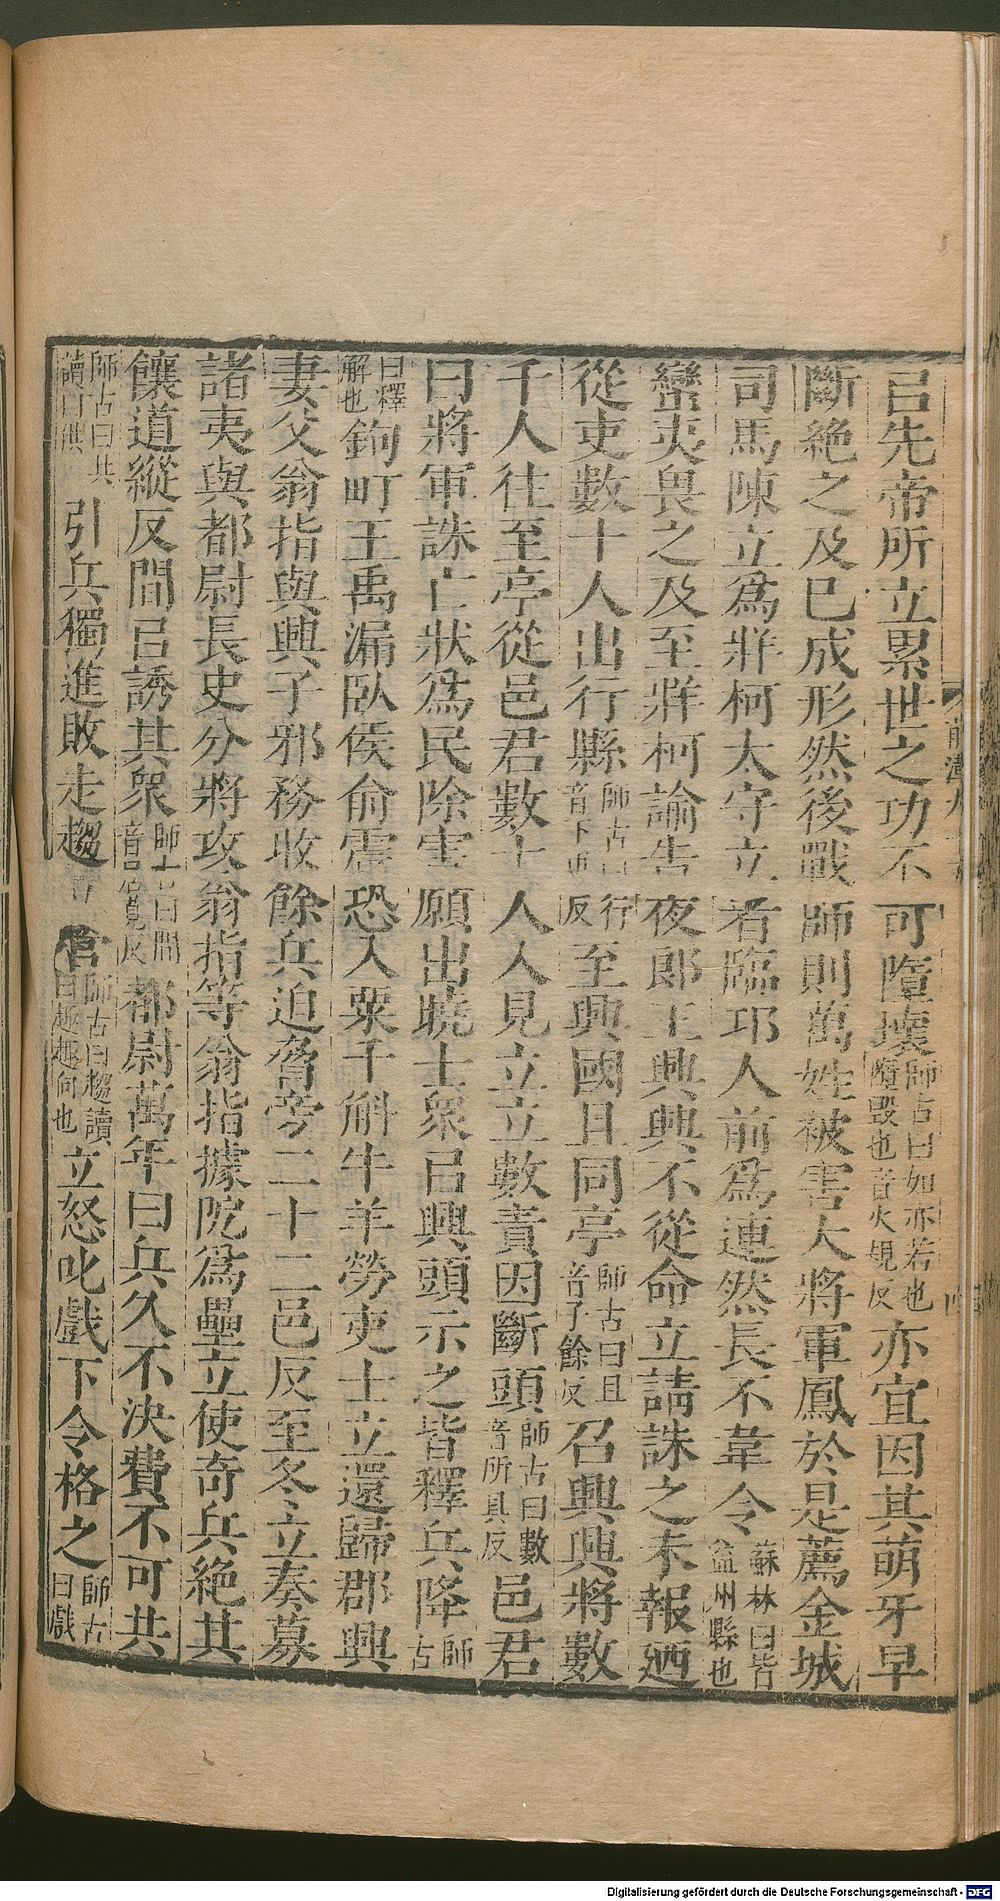 㠯先帝所立累世之功不可墮壞師古曰如亦若也墮毀也音火規反亦宜因其萌牙早
斷絶之及已成形然後戰師則萬姓被害大將軍鳳於是薦金城
司馬陳立爲牂柯太守立者臨邛人前爲連然長不韋令蘇林曰皆益州縣也
蠻夷畏之及至牂柯諭告夜郎王興興不從命立請誅之未報廼
從吏數十人出行縣師古曰行音下更反至興國且同亭師古曰且音子餘反召興興將數
千人往至亭從邑君數十人入見立立數責因斷頭師古曰數音所具反邑君
曰將軍誅亡狀爲民除害願出曉士衆㠯興頭示之皆釋兵降師古
曰釋解也鉤町王禹漏臥侯俞震恐入粟千斛牛羊勞吏士立還歸郡興
妻父翁指與興子邪務收餘兵迫脅旁二十二邑反至冬立奏募
諸夷與都尉長史分將攻翁指等翁指據阸爲壘立使奇兵絶其
饟道縱反間㠯誘其衆師古曰間音居莧反都尉萬年曰兵久不決費不可共
師古曰共讀曰供引兵獨進敗走趨立營師古曰趨讀曰趣趣向也立怒叱戲下令格之師古曰戲
前漢九十五
Digitalisierung gefördert durch die Deutsche Forschungsgemeinschaft - DFG